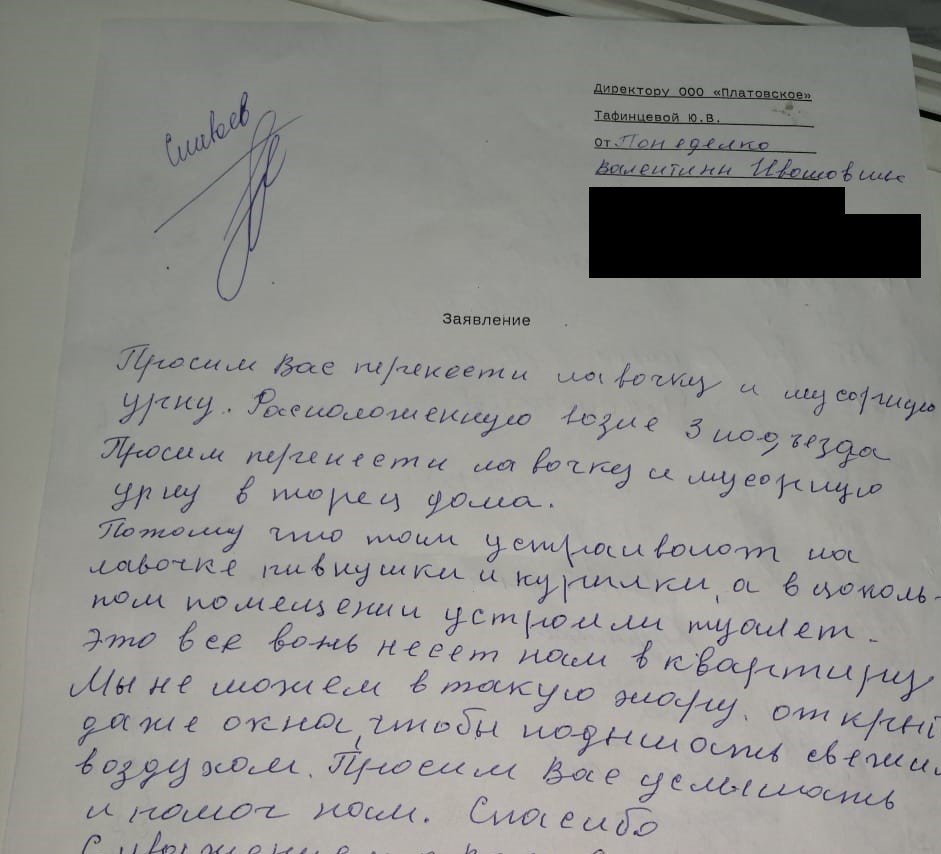 Директору ООО «Платовское»
Тафинцевой Ю.В.
от Понеделко
Валентины Ивановны
Заявление
Просим Вас перенести лавочку и мусорную
урну. Расположенную возле 3 подъезда
Просим перенести лавочку и мусорную
урну в торец дома.
Потому что там устраивают на
лавочке пивнушки и курилки, а в цоколь-
ном помещении устроили туалет.
Это все вонь несет нам в квартиру
Мы не можем в такую жару. откры
даже окна, чтобы подышать свежи
воздухом. Просим Вас услышать
и помоч нам. Спасибо
С уважением